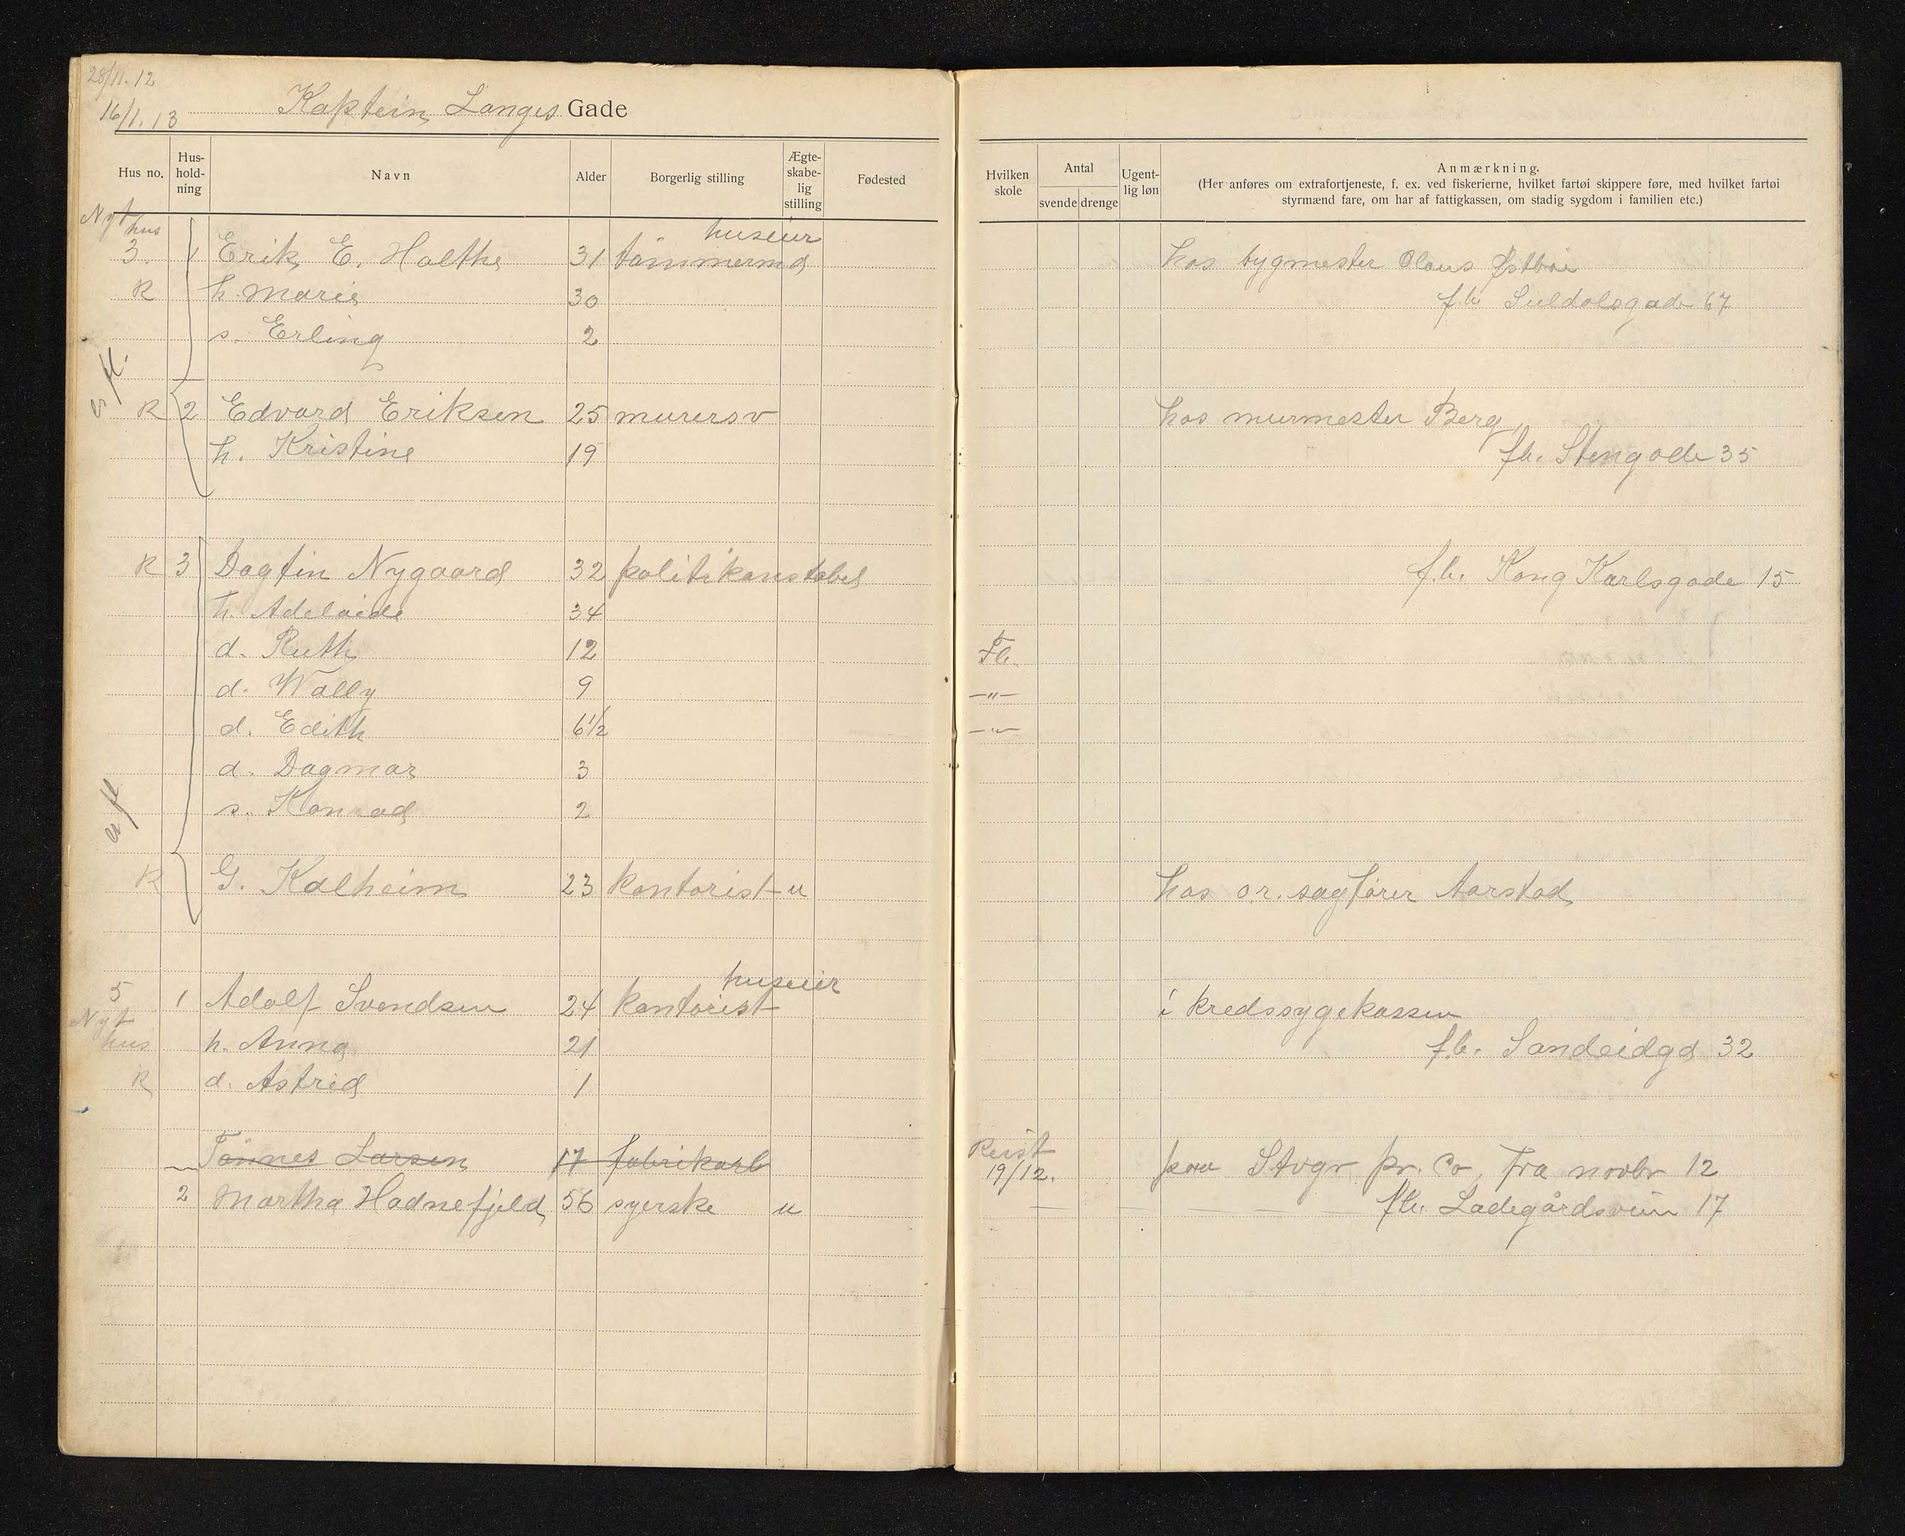 28/11.12
16/1.13 Kaptein Langes Gade
Hus no. Hus-hold-ning Navn Alder Borgerlig stilling Ægte-skabe-lig stilling Fødested
Hvilken skole Antal svende drenge Ugent-lig løn Anmærkning.
(Her anføres om extrafortjeneste, f. ex. ved fiskerierne, hvilket fartøi skippere føre, med hvilket fartøi
styrmænd fare, om har af fattigkassen, om stadig sygdom i familien etc.)
Nyt hus huseier
3. 1 Erik E. Holthe 31 tømmermd hos bygmester Olaus Østbøe
R h. Marie 30 f.b. Suldalsgade 67
s. Erling 2
R 2 Edvard Eriksen 25 murersv hos murmester Berg
h. Kristine 19 f.b. Stengade 35
R 3 Dagfin Nygaard 32 politikonstabel f.b. Kong Karlsgade 15
h. Adelaide 34
d. Ruth 12 Fb.
d. Wally 9 -"-
d. Edith 6 1/2 -"-
d. Dagmar 3
s. Konrad 2
R G. Kalheim 23 kontorist u hos o.r. sagfører Aarstad
huseier
5 1 Adolf Svendsen 24 kontorist i kredssygekassen
Nyt hus h. Anna 21 f.b. Sandeidgd 32
R d. Astrid 1
Tønnes Larsen 17 fabrikarb Reist 19/12. paa Stvgr pr. Co, fra novbr 12
2 Martha Hadnefjeld 56 syerske u — — — — f.b. Ladegårdsveien 17